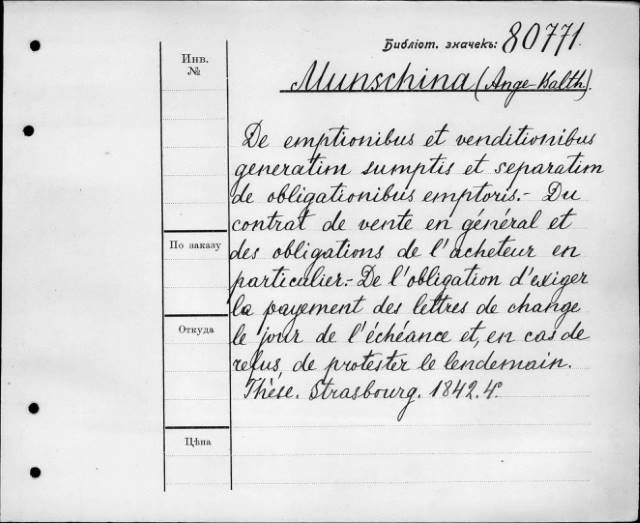 Библіот. значекъ: 80771.
Инв.
№
Munschina (Ange-Balth).
De emptionibus et venditionibus
generatim sumptis et separatim
de obligationibus emptoris.- Du
contrat de vente en général et
По заказу
des obligations de l'acheteur en
particulier.- De l'obligation d'exiger
la payement des lettres de change
Откуда
le jour de l'échéance et, en cas de
refus, de protester le lendemain.
Thèse. Strasbourg. 1842. 4°.
Цѣна